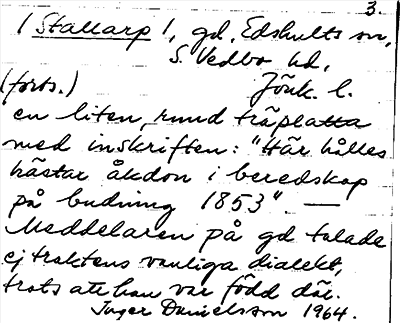 3.
/Stallarp/, gd, Edshults sn,
S. Vedbo hd,
(forts.) Jönk. l.
en liten, rund träplatta
med inskriften: "Här hålles
hästar åkdon i beredskap
på budning 1853". —
Meddelaren på gd talade
ej traktens vanliga dialekt,
trots att han var född där.
Inger Danielsson 1964.